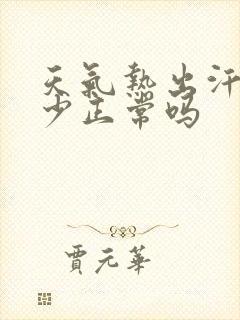 天氣熱出汗
少正常嗎
賈元華